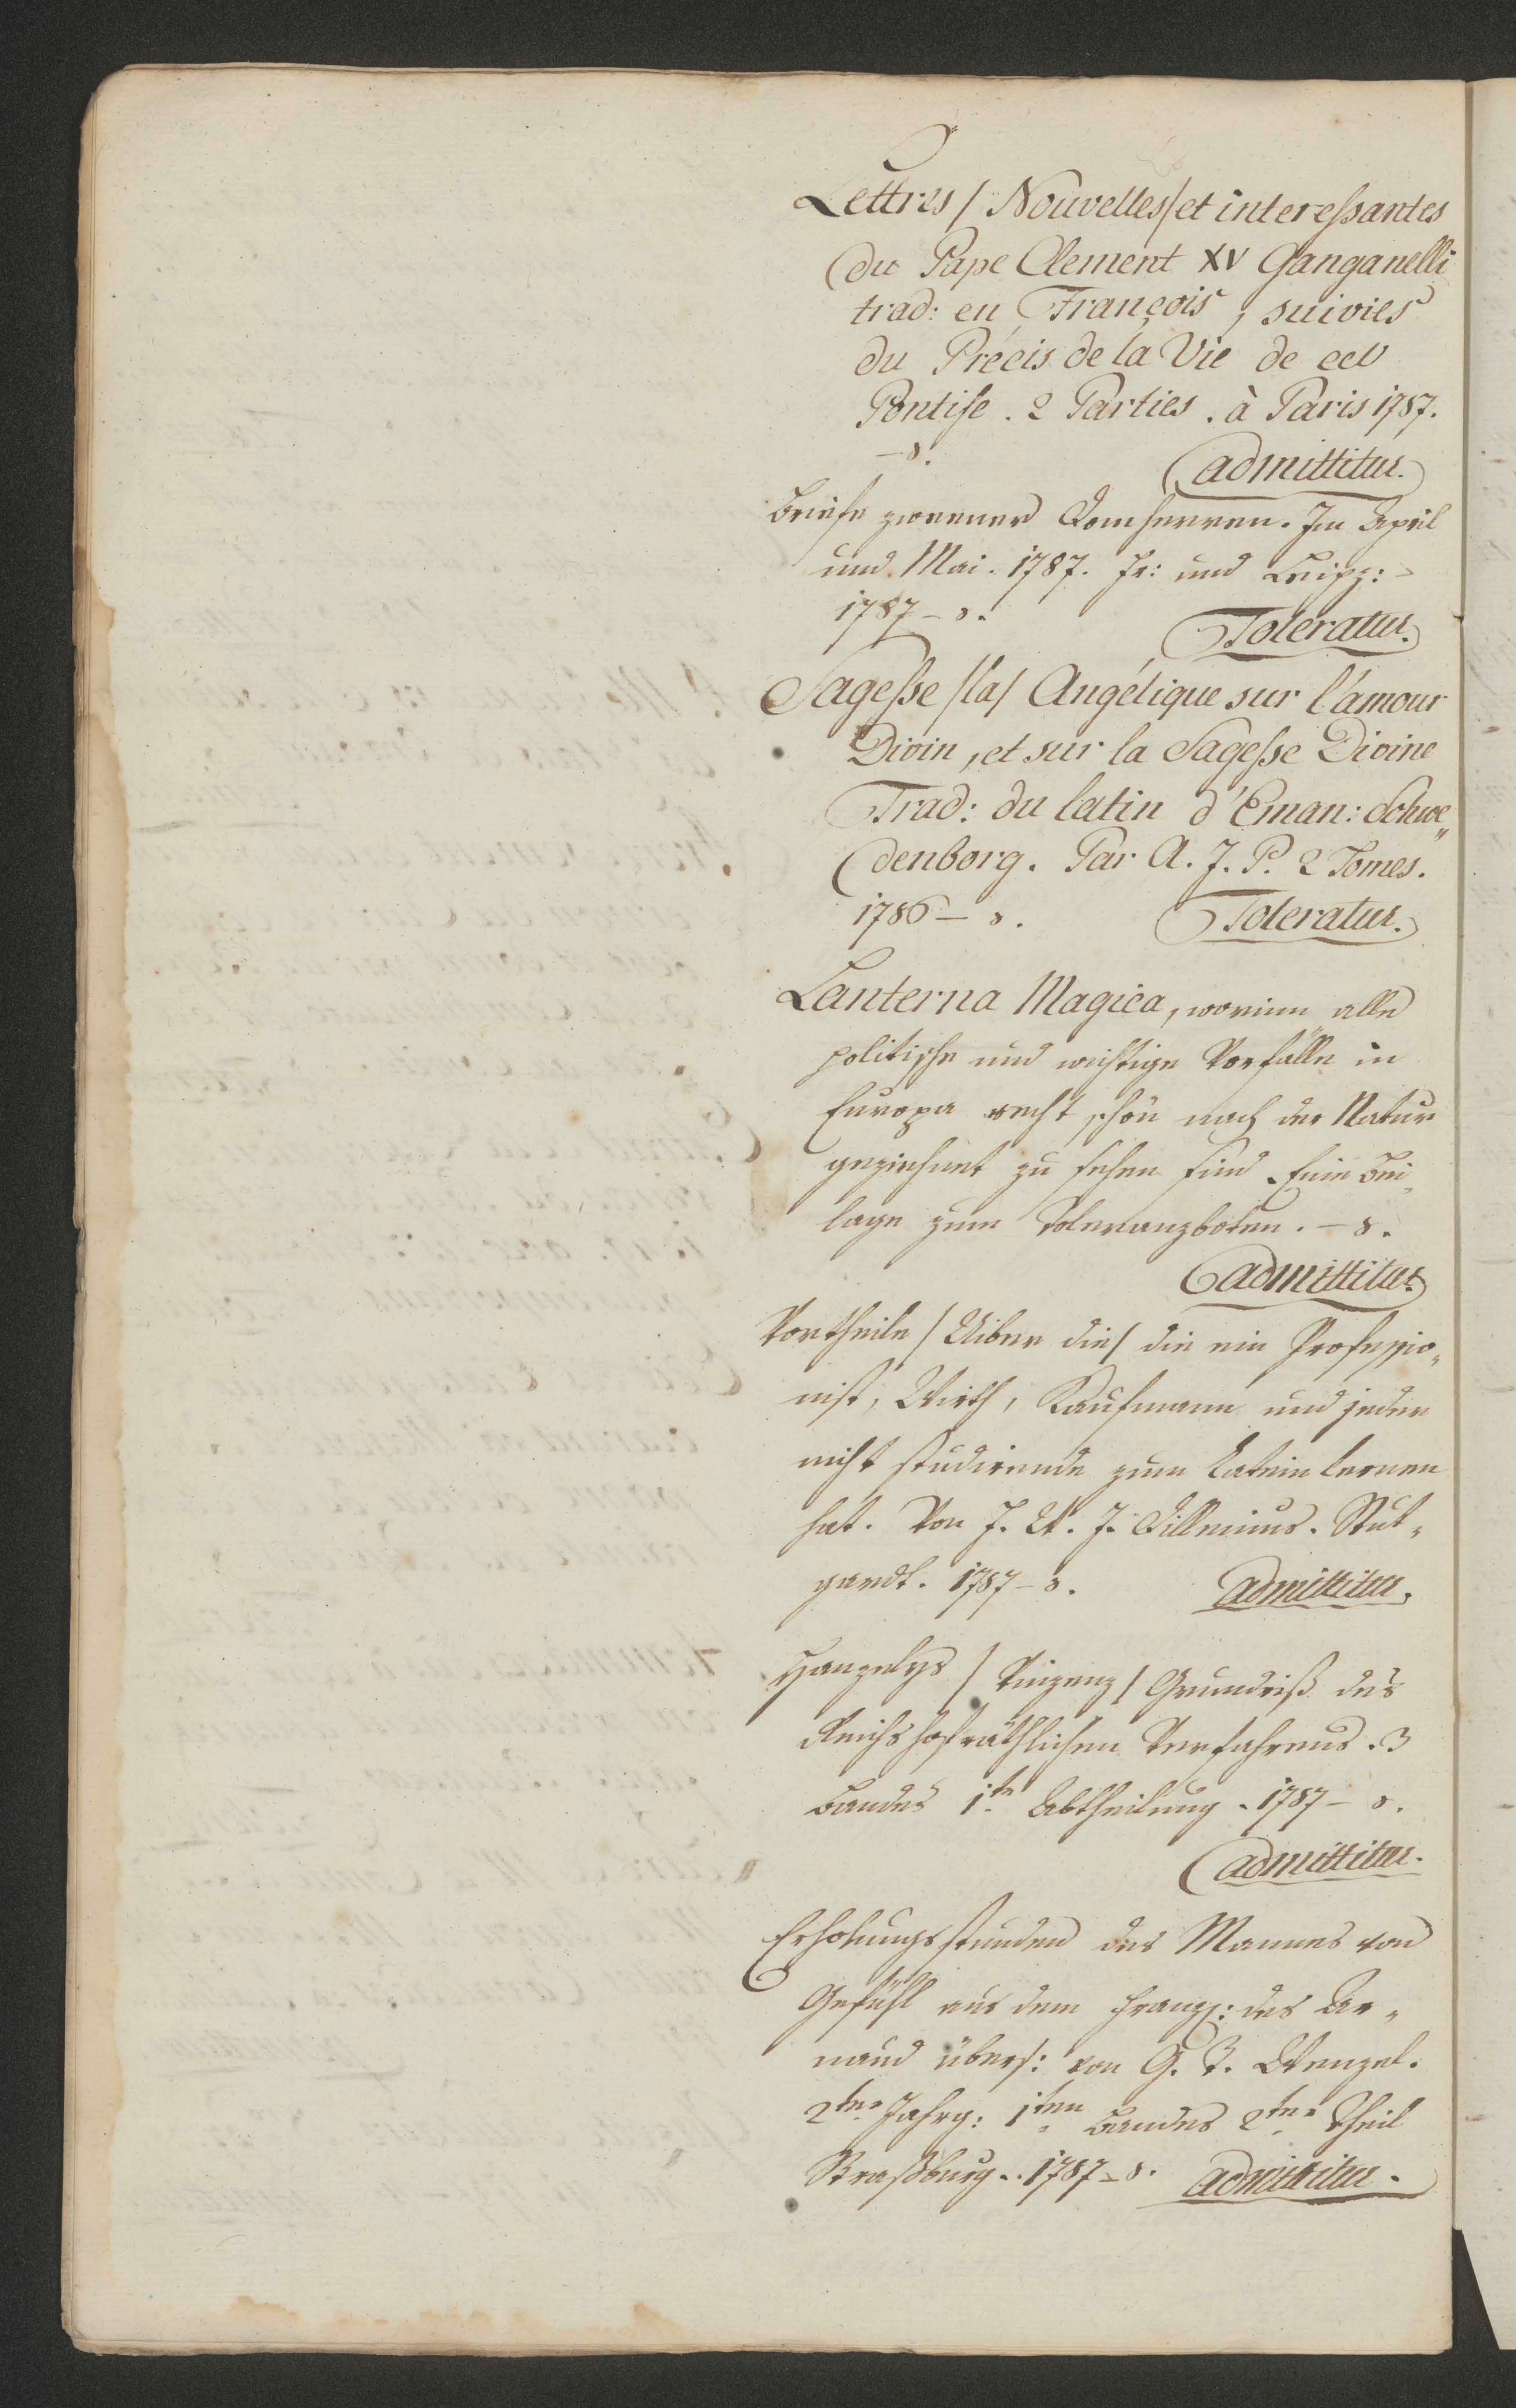 Lettres / Nouvelles / et interessantes
du Pape Clement XV Ganganelli
trad: en François, suivies
du Précis de la Vie de cet
Pontife. 2 Parties. à Paris 1787.
– 8. admittitur.
Briefe zweener Domherren. Im April
und Mai. 1787. Fr: und Leipz:
1787 – 8. Toleratur.
Sagesse / la / Angélique sur l'amour
Divin, et sur la Sagesse Divine
Trad: du latin d'Eman: Schwe„
denborg. Par A. J. P. 2 Tomes.
1786 – 8. Toleratur.
Lanterna Magica, worinn alle
politische und wichtige Vorfälle in
Europa recht schön nach der Natur
gezeichnet zu sehen sind. Eine Bei„
lage zum Toleranzboten. – 8.
admittitur.
Vortheile / Uiber die / die ein Professio„
nist, Wirth, Kaufmann und jeder
nicht studierende zum Latein lernen
hat. Von J. W. J. Dillenius. Stut„
gardt. 1787 – 8. admittitur.
Hanzelys / Vinzenz / Grundriß des
Reichshofräthlichen Verfahrens. 3
Bandes 1te Abtheilung. 1787 – 8.
admittitur.
Erholungsstunden des Mannes von
Gefühl aus dem Franz: des Ar„
naud übers: von G. I. Wenzel.
2ter Jahrg: 1ten Bandes 2ter Theil
Straßburg. 1787 – 8. admittitur.